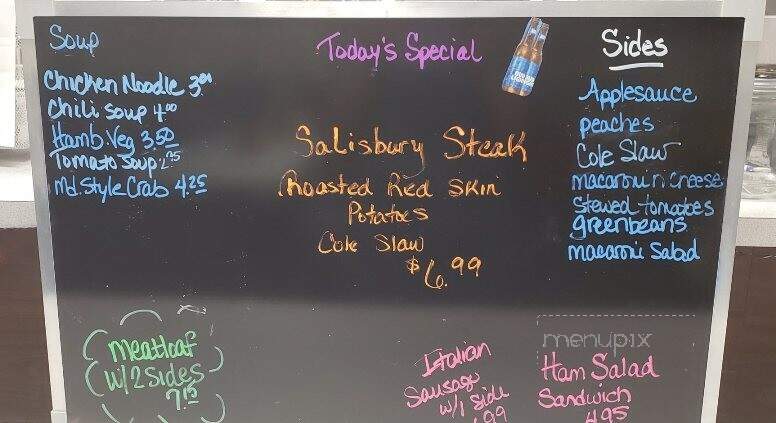 Soup
Chicken Noodle 3.00
Chili soup 4.00
Hamb. Veg 3.50
Tomato Soup 2.95
Md. Style Crab 4.25
Today's Special
Salisbury Steak
Roasted Red Skin
Potatoes
Cole Slaw
$6.99
Sides
Applesauce
peaches
Cole Slaw
macaroni n' cheese
Stewed tomatoes
greenbeans
macaroni Salad
meatloaf
w/2 sides
7.15
Italian
Sausage
w/1 side
.99
menupix
Ham Salad
Sandwich
4.95